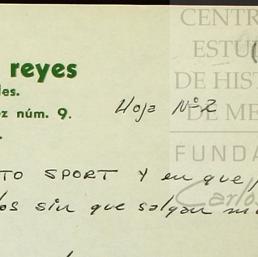 CENTR
ESTU
DE HIST
DE ME
FUNDA
Carlos
reyes
les.
ez núm. 9.
Hoja Nº 2
TO SPORT Y en que
los sin que salgan